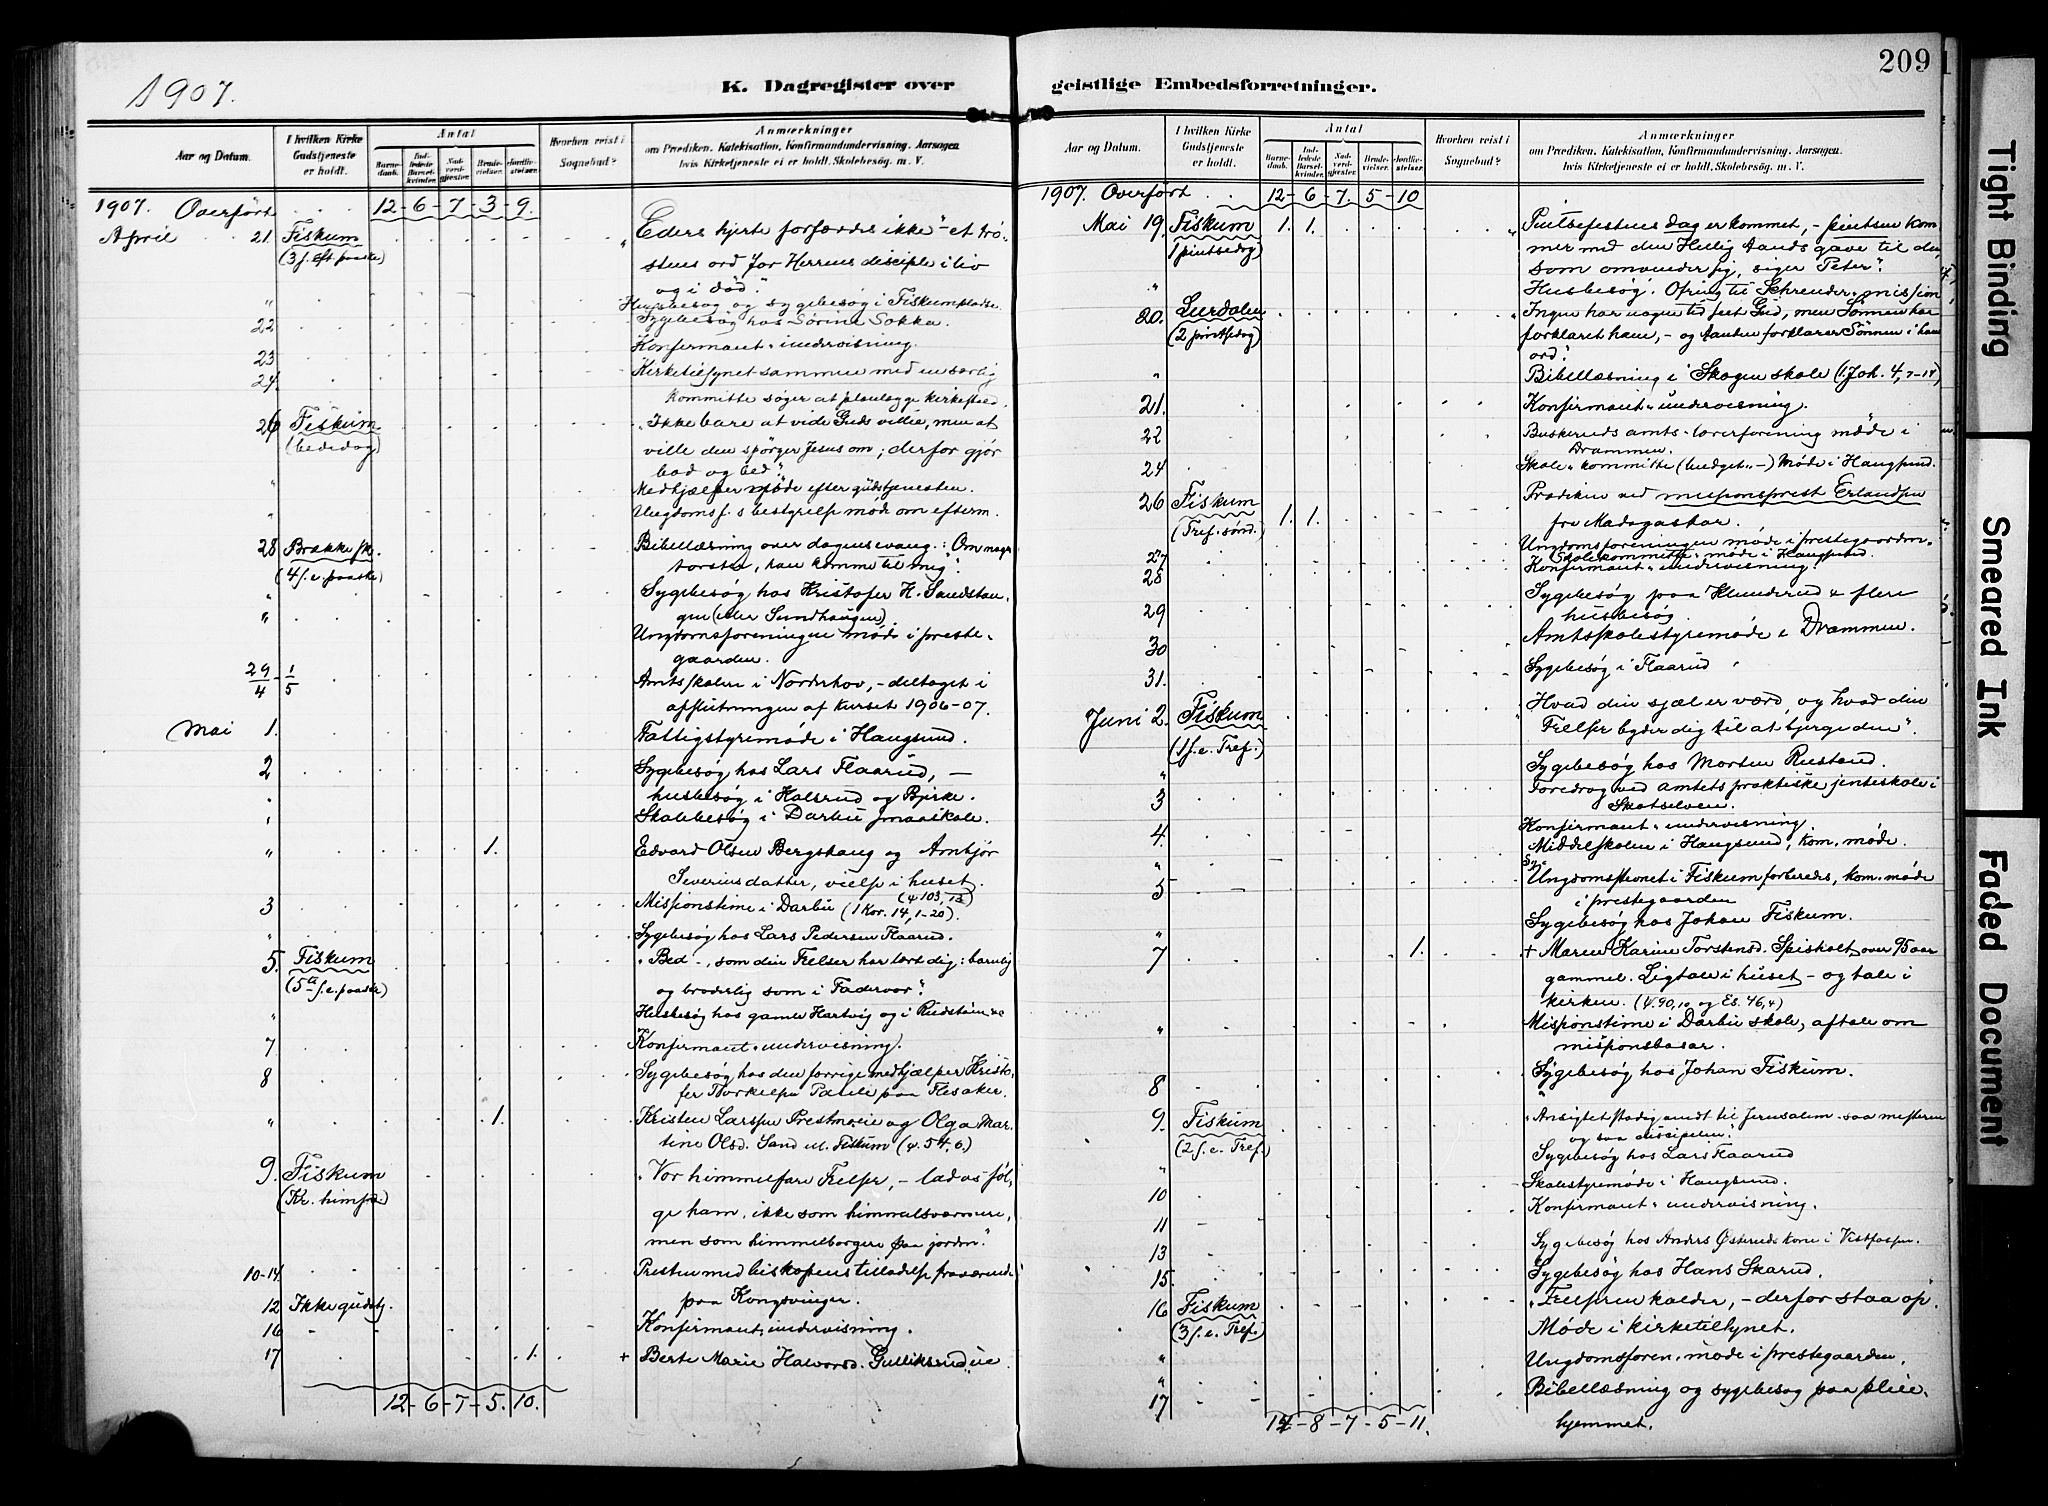 209
1907.
K. Dagregister over
Aar og Datum.
I hvilken Kirke Gudstjeneste er holdt.
Antal
Barnedaab.
Indledede Barselkvinder.
Nadverdgjester.
Brudevielser.
Jordfæstelser.
Hvorhen reist i Sognebud?
Anmærkninger
om Prædiken, Katekisation, Konfirmandundervisning, Aarsagen
hvis Kirketjeneste ei er holdt, Skolebesøg, m. V.
1907. Overført 12-6-7-3-9.
April 21. Fiskum "Eders hjerte forfærdes ikke" - et trø-
(3 s. eft paaske) stens ord for Herrens disciple i liv
og i død."
" Husbesøg og sygebesøg i Fiskum
22 Sygebesøg hos Sørine Sokka
23 Konfirmant-undervisning.
24 Kirketilsynet sammen med en særlig
kommitte søger at planlægge kirkested.
26 Fiskum "Ikke bare at vide Guds villie, men at
(bededag) ville den spørger Jesus om; derfor gjør
bod og bed".
" Medhjælper møde efter gudstjenesten.
" Ungdomsf.s bestyrelse møde om efterm.
28 Brække sk. Bibellæsning over dagens evang.: Om nogen
(4 s. e. paaske) tørster, han komme til mig".
" Sygebesøg hos Kristofer H. Sandstan-
gen (eller Sundhaugen).
" Ungdomsforeningen møde i preste-
gaarden.
29/4 - 1/5 Amtsskolen i Norderhov, - deltaget i
afslutningen af kurset 1906-07.
Mai 1. Fattigstyremøde i Haugsund.
2 Sygebesøg hos Lars Flaarud, -
husbesøg i Halsrud og Bjerke.
" Skolebesøg i Darbu smaaskole.
" 1. Edvard Olsen Bergstaug og Amtjør
Severinsdatter, vielse i huset.
(ψ 103, 13)
3 Missionstime i Darbu (1 Kor. 14, 1-20).
" Sygebesøg hos Lars Pedersen Flaarud.
5. Fiskum "Bed -, som din Frelser har lært dig: barnlig
(5te s. e. paaske) og broderlig som i Fadervor".
" Husbesøg hos gamle Hartvig og i Rudstuen &c
7 Konfirmant-undervisning.
8 Sygebesøg hos den forrige medhjælper Kristo-
fer Torkelsen Tatile paa Flesaker.
" 1. Kristen Larssen Prestmoeie og Olga Mar-
tine Olsd. Sand u. Fiskum (ψ. 54, 6)
9. Fiskum "Vor himmelfarne Frelser, - lad os føl-
(Kr. himfd.) ge ham, ikke som himmelsværmere,
men som himmelborgere paa jorden."
10-14 Presten med biskopens tilladelse fraværende
paa Kongsvinger.
12 Ikke gudstj.
16 Konfirmant-undervisning.
17 1. + Berte Marie Halvorsd. Gulliksrudeie
12-6-7-5.10.
geistlige Embedsforretninger.
Aar og Datum.
I hvilken Kirke Gudstjeneste er holdt.
Antal
Barnedaab.
Indledede Barselkvinder.
Nadverdgjester.
Brudevielser.
Jordfæstelser.
Hvorhen reist i Sognebud?
Anmærkninger
om Prædiken, Katekisation, Konfirmandundervisning, Aarsagen
hvis Kirketjeneste ei er holdt, Skolebesøg, m. V.
1907. Overført 12-6-7.-5-10
Mai 19. Fiskum 1. 1. "Pintsefestens dag er kommet, - pintsen kom-
(1 pintsedag) mer med den Hellig Aands gave til den,
som omvender sig, siger Peter".
" Husbesøg. Ofring til Schreuder-mission
20. Lurdalen "Ingen har nogen tid seet Gud, men Sønnen har
(2 pintsedag) forklaret ham, - og Aanden forklarer Sønnen i hans
ord".
" Bibellæsning i Skogen skole (1 Joh. 4, 7-14)
21. Konfirmant-undervisning.
22 Buskeruds amts-lærerforening møde i
Drammen.
24 Skole-kommitte (budget-) Møde i Haugsund.
26 Fiskum 1. 1. Prædiken ved missionsprest Erlandsen
(Tref. sønd.) fra Madagaskar.
" Ungdomsforeningen møde i prestegaarden.
27 Skolekommitte-møde i Haugsund.
28 Konfirmant-undervisning.
29 Sygebesøg paa Klunderud & flere
husbesøg.
30 Amtsskolestyremøde i Drammen.
31. Sygebesøg i Flaarud
Juni 2. Fiskum "Hvad din sjæl er værd, og hvad din
(1 s. e. Tref.) Frelser byder dig til at bjerge den".
" Sygebesøg hos Morten Rustand.
3 Foredrag ved amtets praktiske jenteskole i
Skotselven.
4. Konfirmant-undervisning
" Middelskolen i Haugsund, kom. møde.
5 Ungdomsstevnet i Fiskum forberedes, kom. møde
i prestegaarden
Sygebesøg hos Johan Fiskum.
7 1. + Maren Karine Torstensd. Spiskolt over 95 aar
gammel. Ligtale i huset - og tale i
kirken. (ψ. 90, 10 og Es. 46, 4)
" Missionstime i Darbu skole, aftale om
missionsbasar.
8 Sygebesøg hos Johan Fiskum.
9. Fiskum "Ansigtet stadig vendt til Jerusalem - saa mesteren
(2 s. e. Tref.) og saa disciplen".
" Sygebesøg hos Lars Flaarud
10 Skolestyremøde i Haugsund.
11 Konfirmant-undervisning.
13 Sygebesøg hos Anders Østerud's kone i Vestfossen.
15. Sygebesøg hos Hans Skarud.
16 Fiskum "Frelseren kalder, - derfor staa op".
(3 s. e. Tref.) Møde i kirketilsynet.
" Ungdomsforen. møde i prestegaarden.
" Bibellæsning og sygebesøg paa pleie-
17 hjemmet.
14-8-7-5-11.
Tight Binding
Smeared Ink
Faded Document